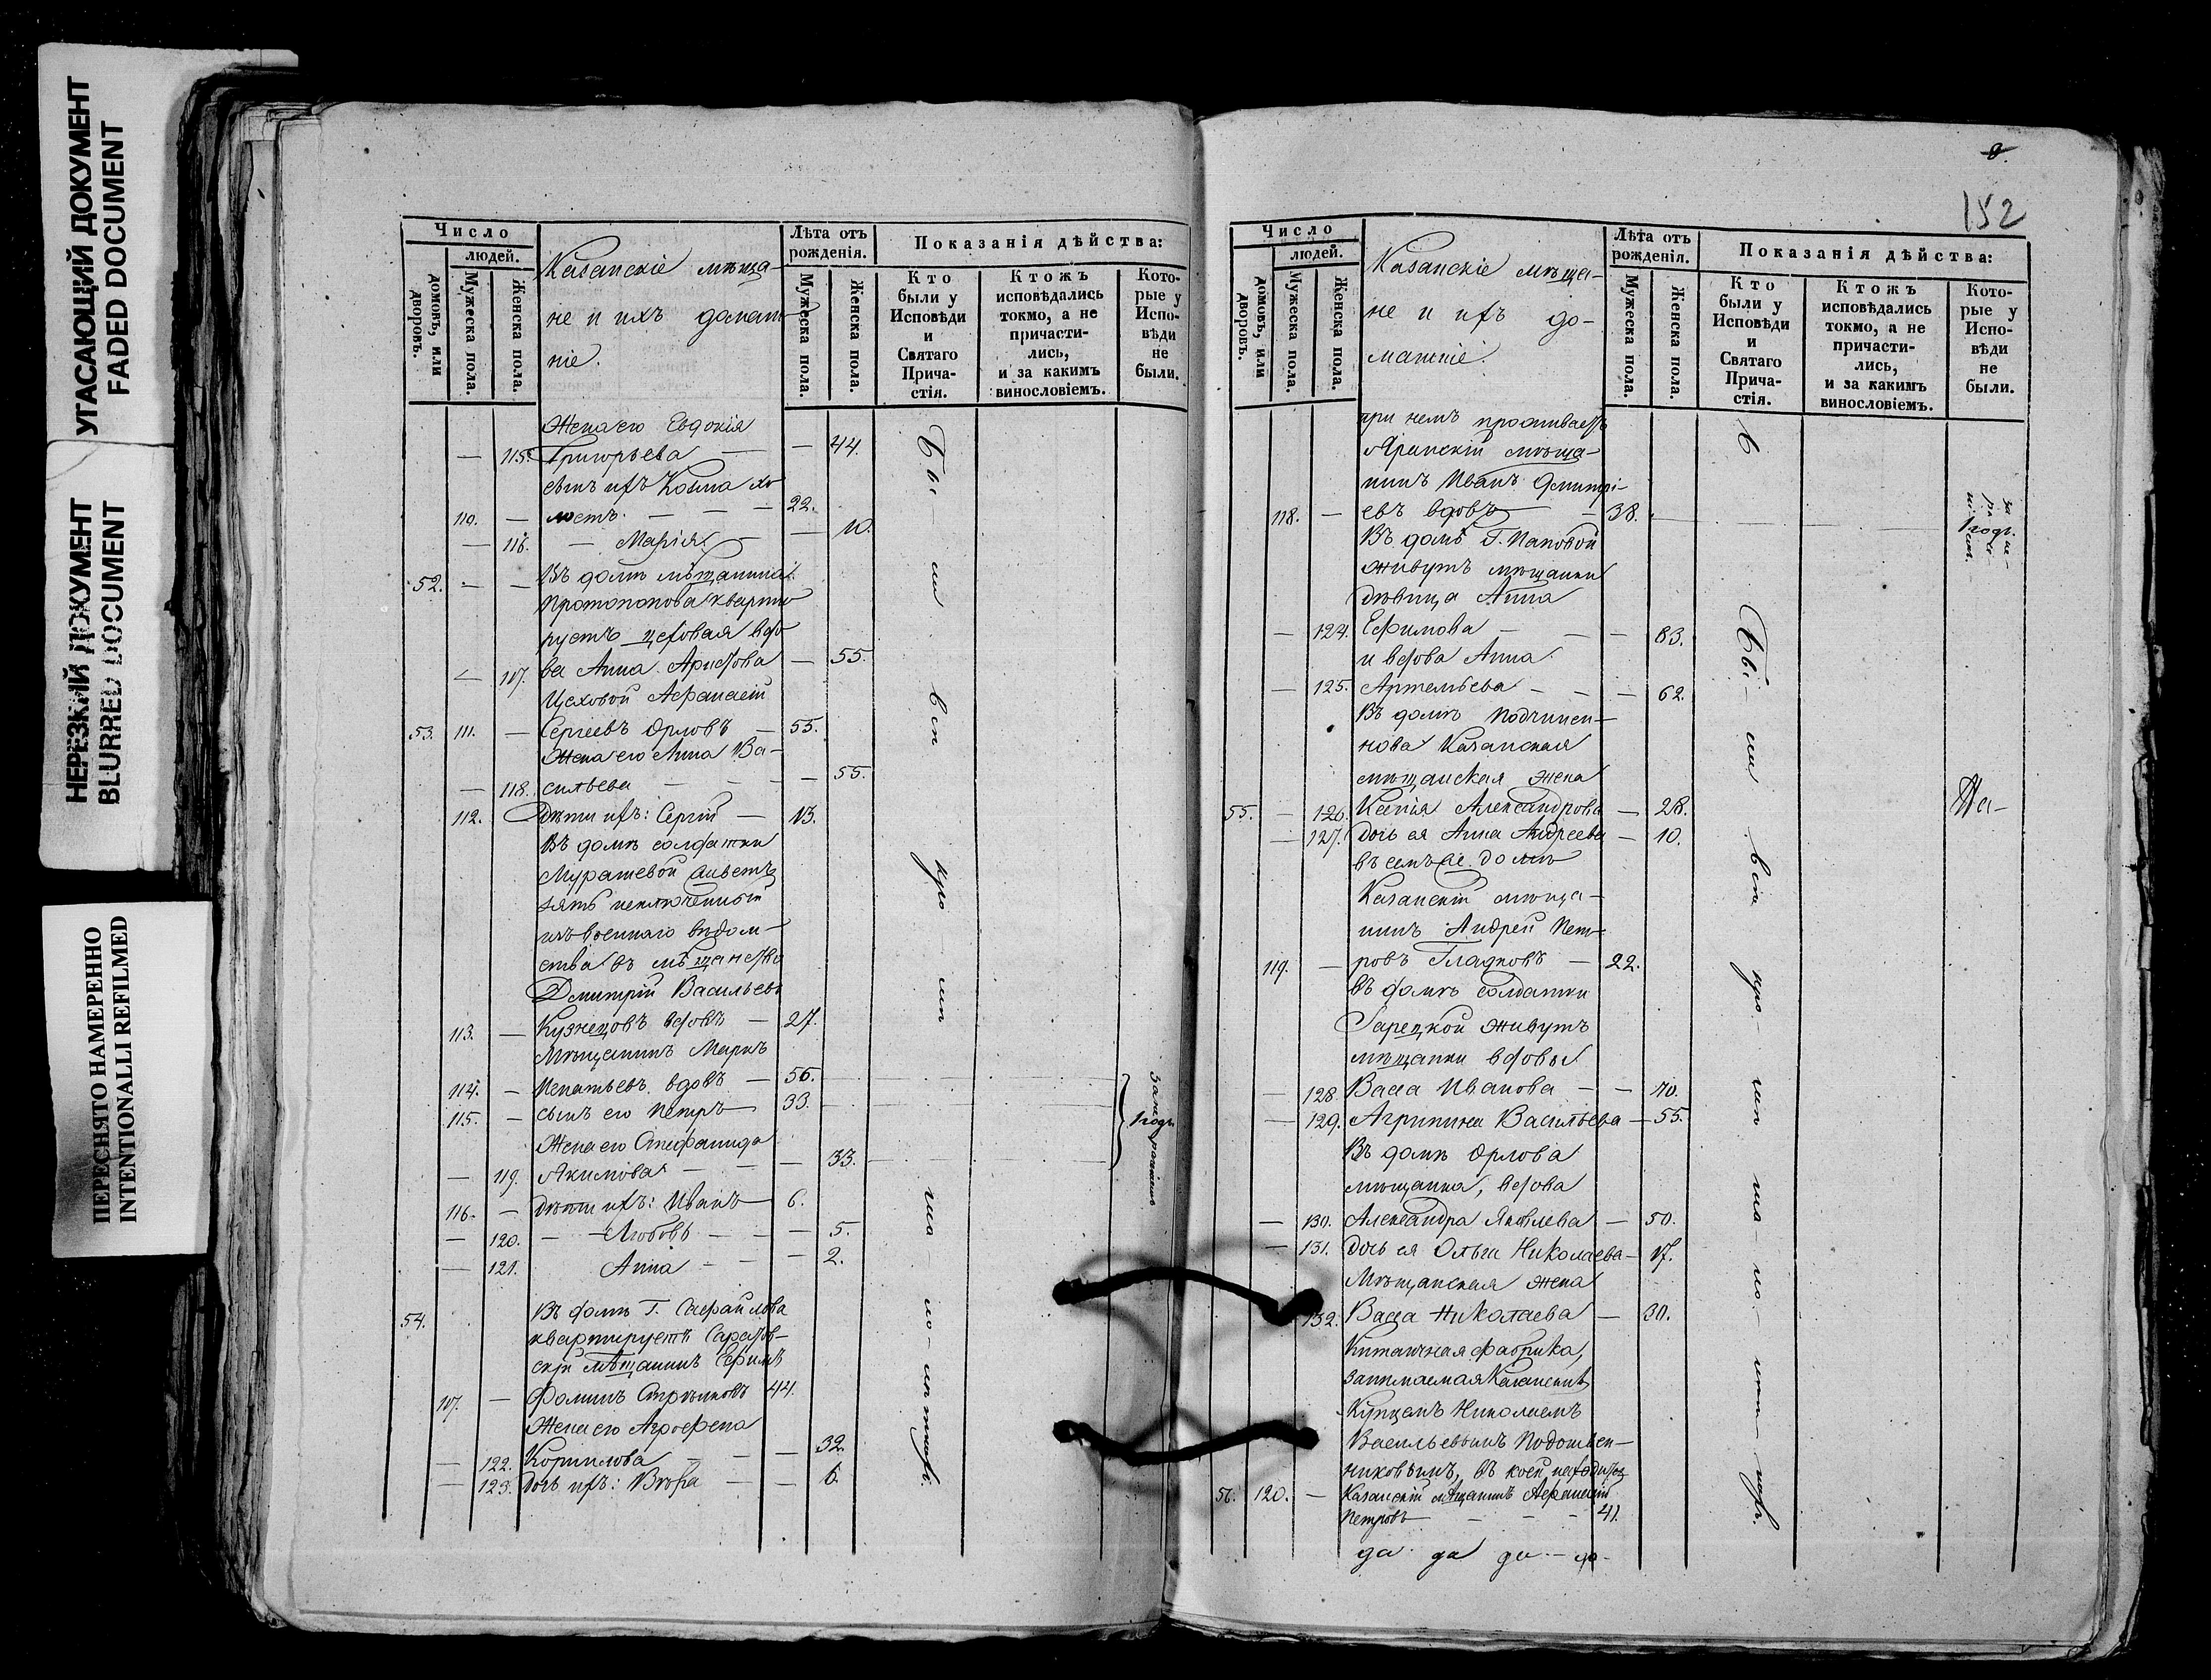 УГАСАЮЩИЙ ДОКУМЕНТ
FADED DOCUMENT
НЕРЕЗКИЙ ДОКУМЕНТ
BLURRED DOCUMENT
ПЕРЕСНЯТО НАМЕРЕННО
INTENTIONALLI REFILMED
Число
людей.
домовъ, или дворовъ.
Мужеска пола.
Женска пола.
Казанскіе мѣща-
не и ихъ домаш-
ніе.
Лѣта отъ рожденія.
Мужеска пола.
Женска пола.
Показанія дѣйства:
Кто были у Исповѣди и Святаго Прича-стія.
Ктожъ исповѣдались токмо, а не причасти-лись, и за какимъ винословіемъ.
Кото-рые у Испо-вѣди не были.
Жена его Евдокія
— 115. Григорьева — — 44.
сынъ ихъ Козма хо-
110. — лостъ — — — 22.
— 116. — Марія — — 10.
52. — — Въ домѣ мѣщанина
Протопопова кварти-
руетъ цеховая вдо-
— 117. ва Анна Аристова — 55.
Цеховой Афанасій
53. 111. — Сергеевъ Орловъ — 55.
Жена его Анна Ва-
— 118. сильева — — — 55.
112. Дѣти ихъ: Сергій — 13.
Въ домѣ солдатки
Мурашевой живетъ
зять исключенный
изъ военнаго вѣдом-
ства въ мѣщанство
Дмитрій Васильевъ
113. — Кузнецовъ вдовъ — 27.
Мѣщанинъ Маркъ
114. — Игнатьевъ вдовъ — 56.
115. — сынъ его Петръ — 33.
Жена его Стефанида
— 119. Якимова — — — 33.
116. — дѣти ихъ: Иванъ — 6.
— 120. — — Любовь — — — 5.
— 121. Анна — — — 2.
54. Въ домѣ Г.
квартируетъ
скій мѣщанинъ Ефимъ
117. — Фоминъ 44.
Жена его Агрофена
— 122. Корнилова — — — 32.
— 123. дочь ихъ: Вѣра — — 6.
Бы-ли вси
1 годъ
8.
152
Число
людей.
домовъ, или дворовъ.
Мужеска пола.
Женска пола.
Казанскіе мѣща-
не и ихъ до-
машніе.
Лѣта отъ рожденія.
Мужеска пола.
Женска пола.
Показанія дѣйства:
Кто были у Исповѣди и Святаго Прича-стія.
Ктожъ исповѣдались токмо, а не причасти-лись, и за какимъ винословіемъ.
Кото-рые у Испо-вѣди не были.
при немъ проживаетъ
Яранскій мѣща-
нинъ Иванъ Дмитрі-
118. — евъ вдовъ — 38.
1 годъ.
Въ домѣ Г. Пановой
живутъ мѣщанки
дѣвица Анна
— 124. Ефимова — — — 83.
и вдова Анна
— 125. Артемьева — — — 62.
Въ домѣ Подчинен-
нова Казанская
мѣщанская жена
55. — 126. Ксенія Александрова — 28.
— 127. дочь ея Анна Андреева — 10.
въ семъ же домѣ
Казанскій мѣща-
нинъ Андрей Пет-
119. — ровъ Гладковъ — 22.
въ домѣ солдатки
Зарецкой живутъ
мѣщанки вдовы
— 128. Васса Иванова — — 70.
— 129. Агрипина Васильева — 55.
Въ домѣ Орлова
мѣщанка, вдова
— 130. Александра Яковлева — 50.
— 131. дочь ея Ольга Николаева — 17.
Мѣщанская жена
132. Васса Николаева — 30.
Китаичная фабрика,
занимаемая Казанскимъ
Купцемъ Николаемъ
Васильевымъ Подошвен-
никовымъ, въ коей находится
56. 120. — Казанскій мѣщанинъ Афанасій
Петровъ — — — 41.
Бы-ли вси
да да да